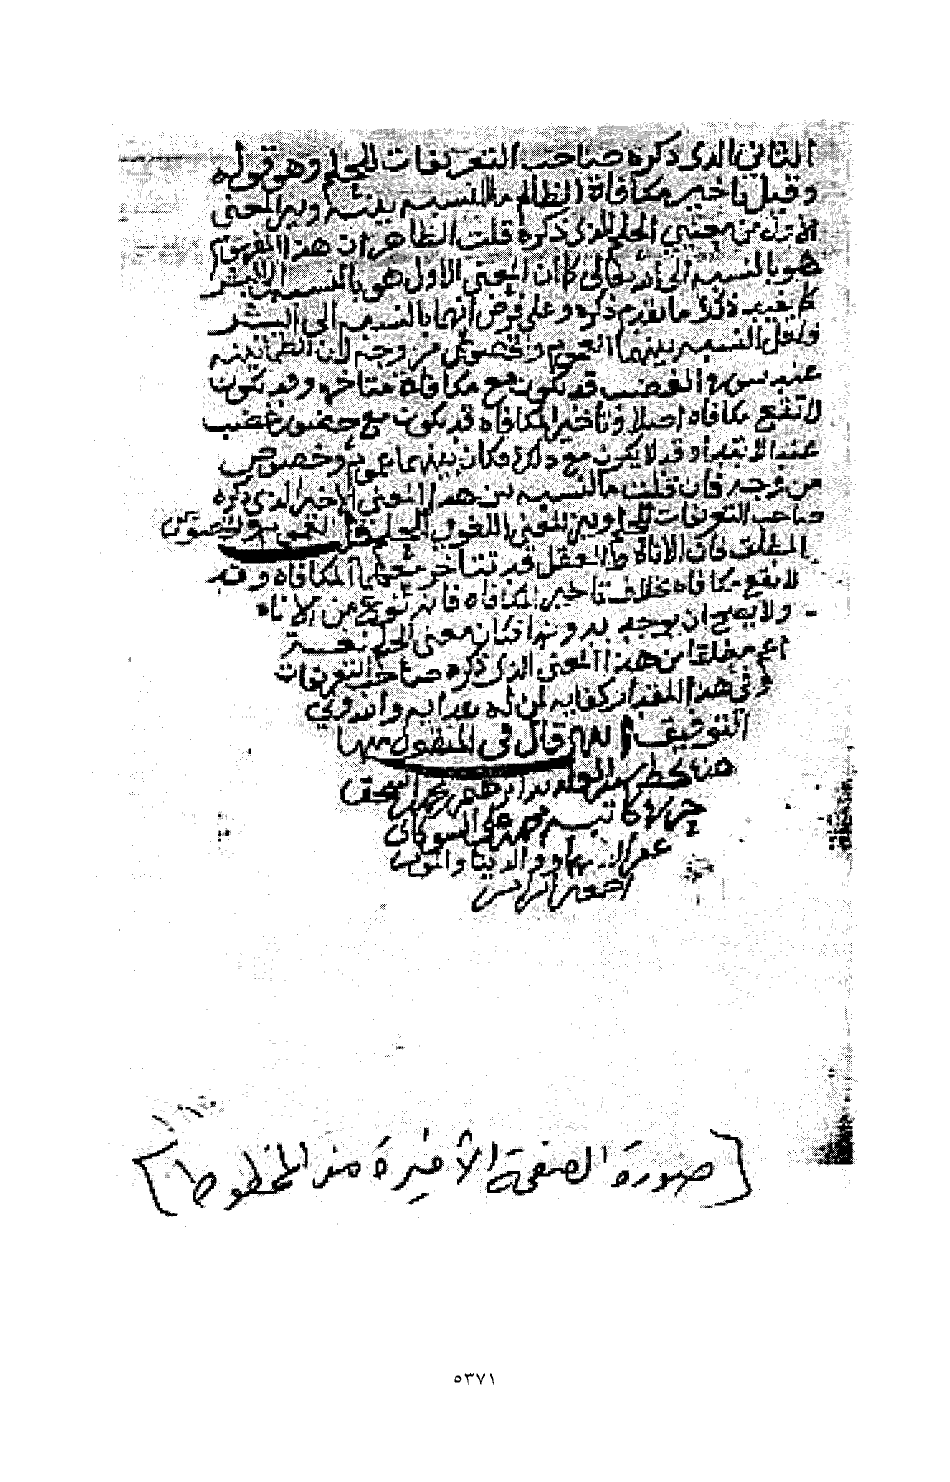 الثاني الذي ذكره صاحب التعريفات للحلم وهو قوله
وقيل تأخير مكافاة الظالم ما النسبه بينه وبين المعنى
الاول من معنيي الحلم الذي ذكره قلت الظاهر ان هذا المفهوم
هو بالنسبه الى الله تعالى كما ان المعنى الاول هو بالنسبه الى البشر
كما يفيد ذلك ما تقدم ذكره وعلى فرض انهما بالنسبه الى البشر
ولعل النسبه بينهما العموم والخصوص من وجه لان الطمانينه
عند سورة الغضب قد تكون مع مكافاة متاخره وقد تكون
لا تقع مكافاه اصلا وتأخير المكافاه قد يكون مع حضور غضب
عند الابتداء وقد لا يكون مع ذلك فكان بينهما عموم وخصوص
من وجه فان قلت ما النسبه بين هذا المعنى الاخير الذي ذكره
صاحب التعريفات للحلم وبين المعنى اللغوي للحلم قلت العموم والخصوص
المطلق فان الاناة والعقل قد تتاخر معهما المكافاه وقد
لا تقع مكافاه بخلاف تاخير المكافاه فانه نوع من الاناه
ولا يصح ان يوجد بدونها فكان معنى الحلم لغة
اعم مطلقا من هذا المعنى الذي ذكره صاحب التعريفات
وفي هذا المقدار كفايه لمن له هدايه والله ولي
التوفيق انتهى قال في المنقول منها
حرره كاتبه محمد بن علي الشوكاني
غفر الله لهما
[صورة الصفحة الأخيرة من المخطوط]
٥٣٧١